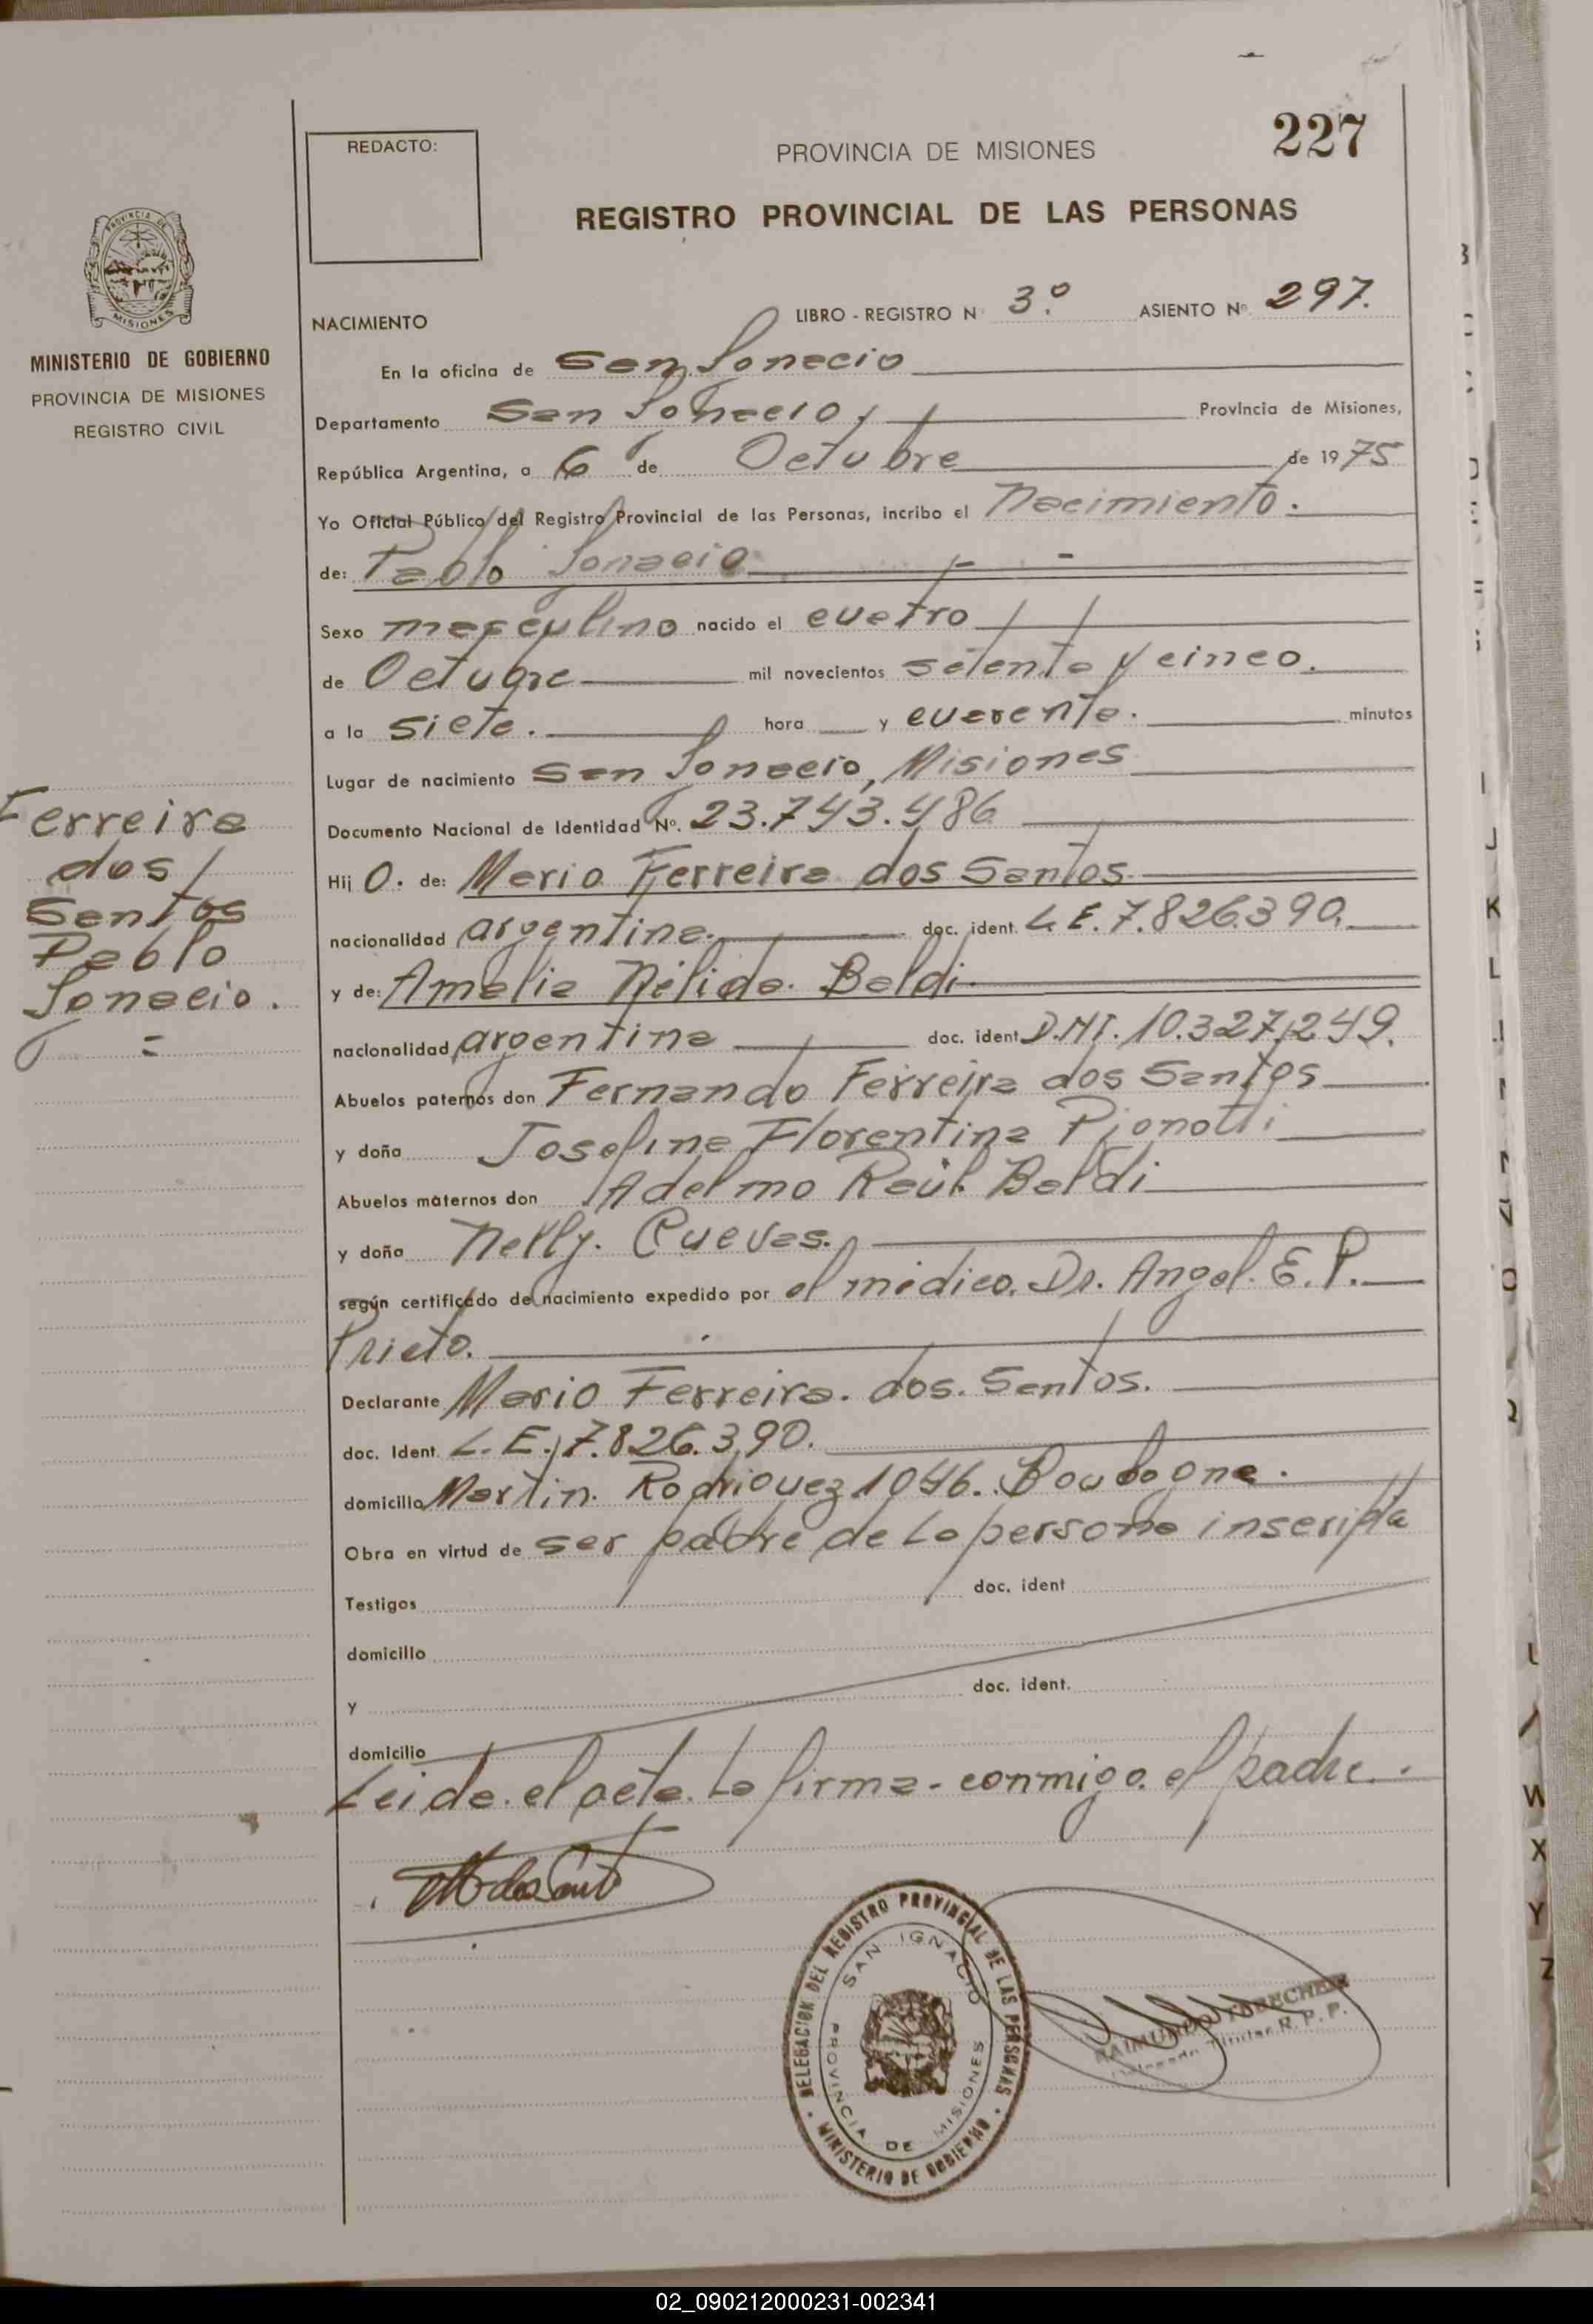 227
REDACTO:
PROVINCIA DE MISIONES
REGISTRO PROVINCIAL DE LAS PERSONAS
PROVINCIA DE MISIONES
MINISTERIO DE GOBIERNO
PROVINCIA DE MISIONES
REGISTRO CIVIL
NACIMIENTO LIBRO - REGISTRO N 3.º ASIENTO Nº 297.
En la oficina de San Ignacio
Departamento San Ignacio, Provincia de Misiones,
República Argentina, a 6 de Octubre de 1975
Yo Oficial Público del Registro Provincial de las Personas, incribo el Nacimiento.
de: Pablo Ignacio
Sexo masculino nacido el cuatro
de Octubre mil novecientos setenta y cinco.
a la siete. hora y cuarenta. minutos
Lugar de nacimiento San Ignacio, Misiones
Documento Nacional de Identidad Nº. 23.743.486
Hij o. de: Mario Ferreira dos Santos
nacionalidad argentina. doc. ident. L.E. 7.826.390.
y de: Amalia Nélida. Baldi
nacionalidad argentina doc. ident. D.N.I. 10.327.249.
Abuelos paternos don Fernando Ferreira dos Santos
y doña Josefina Florentina
Abuelos maternos don Adelmo Raúl Baldi
y doña Nelly. Cuevas.
según certificado de nacimiento expedido por el médico. Dr. Angel. E. P.
Prieto.
Declarante Mario Ferreira. dos. Santos.
doc. Ident. L.E. 7.826.390.
domicilio Martin. Rodriguez 1046. Boulogne.
Obra en virtud de ser padre de la persona inscripta
Testigos doc. ident
domicilio
y doc. ident.
domicilio
Leida. el acta. La firma conmigo. el padre.
Ferreira
dos
Santos
Pablo
Ignacio.
DELEGACION DEL REGISTRO PROVINCIAL DE LAS PERSONAS
SAN IGNACIO
PROVINCIA DE MISIONES
MINISTERIO DE GOBIERNO
RAIMUNDO
Delegado Titular R. P. P.
J
K
L
N
O
Q
U
W
X
Y
Z
02_090212000231-002341